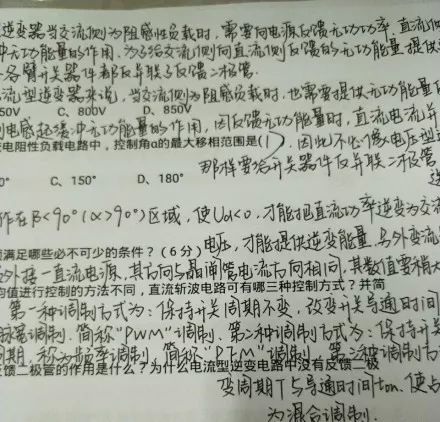 逆变器当交流侧为阻感性负载时,需要向电源反馈无功功率,直流侧
冲无功能量的作用。为了给交流侧向直流侧反馈的无功能量提供
各臂开关器件都反并联了反馈二极管.
流型逆变器来说,当交流侧为阻感负载时,也需要提供无功能量
50V C、800V D、850V
电感起缓冲无功能量的作用,因反馈无功能量时,直流电流并
电阻性负载电路中,控制角α的最大移相范围是( ),因此不必像电压型
那样要给开关器件反并联二极管
0° C、150° D、180°
作在β<90°(α>90°)区域,使Ud<0,才能把直流功率逆变为交流
须满足哪些必不可少的条件?(6分)电压,才能提供逆变能量,另外变流
外接一直流电源,其方向与晶闸管电流方向相同,其数值要稍大
均值进行控制的方法不同,直流斩波电路可有哪三种控制方式?并简
第一种调制方式为:保持开关周期不变,改变开关导通时间
脉宽调制.简称"PWM"调制.第二种调制方式为:保持开关
周期,称为频率调制,简称"PFM"调制.第三种调制方
反馈二极管的作用是什么?为什么电流型逆变电路中没有反馈二极
变周期T与导通时间ton,使占
为混合调制.